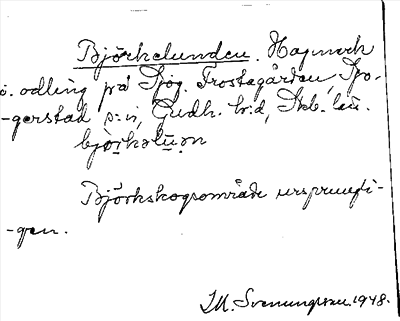 Björkelunden. Hagmark
o. odling på Sjög. Frostagården, Spo-
-gerstad s:n, Gudh. h:d, Skb. län.
bjö̱rkəlu̱n
Björkskogsområde ursprungli-
-gen.
M. Svenungsson. 1948.